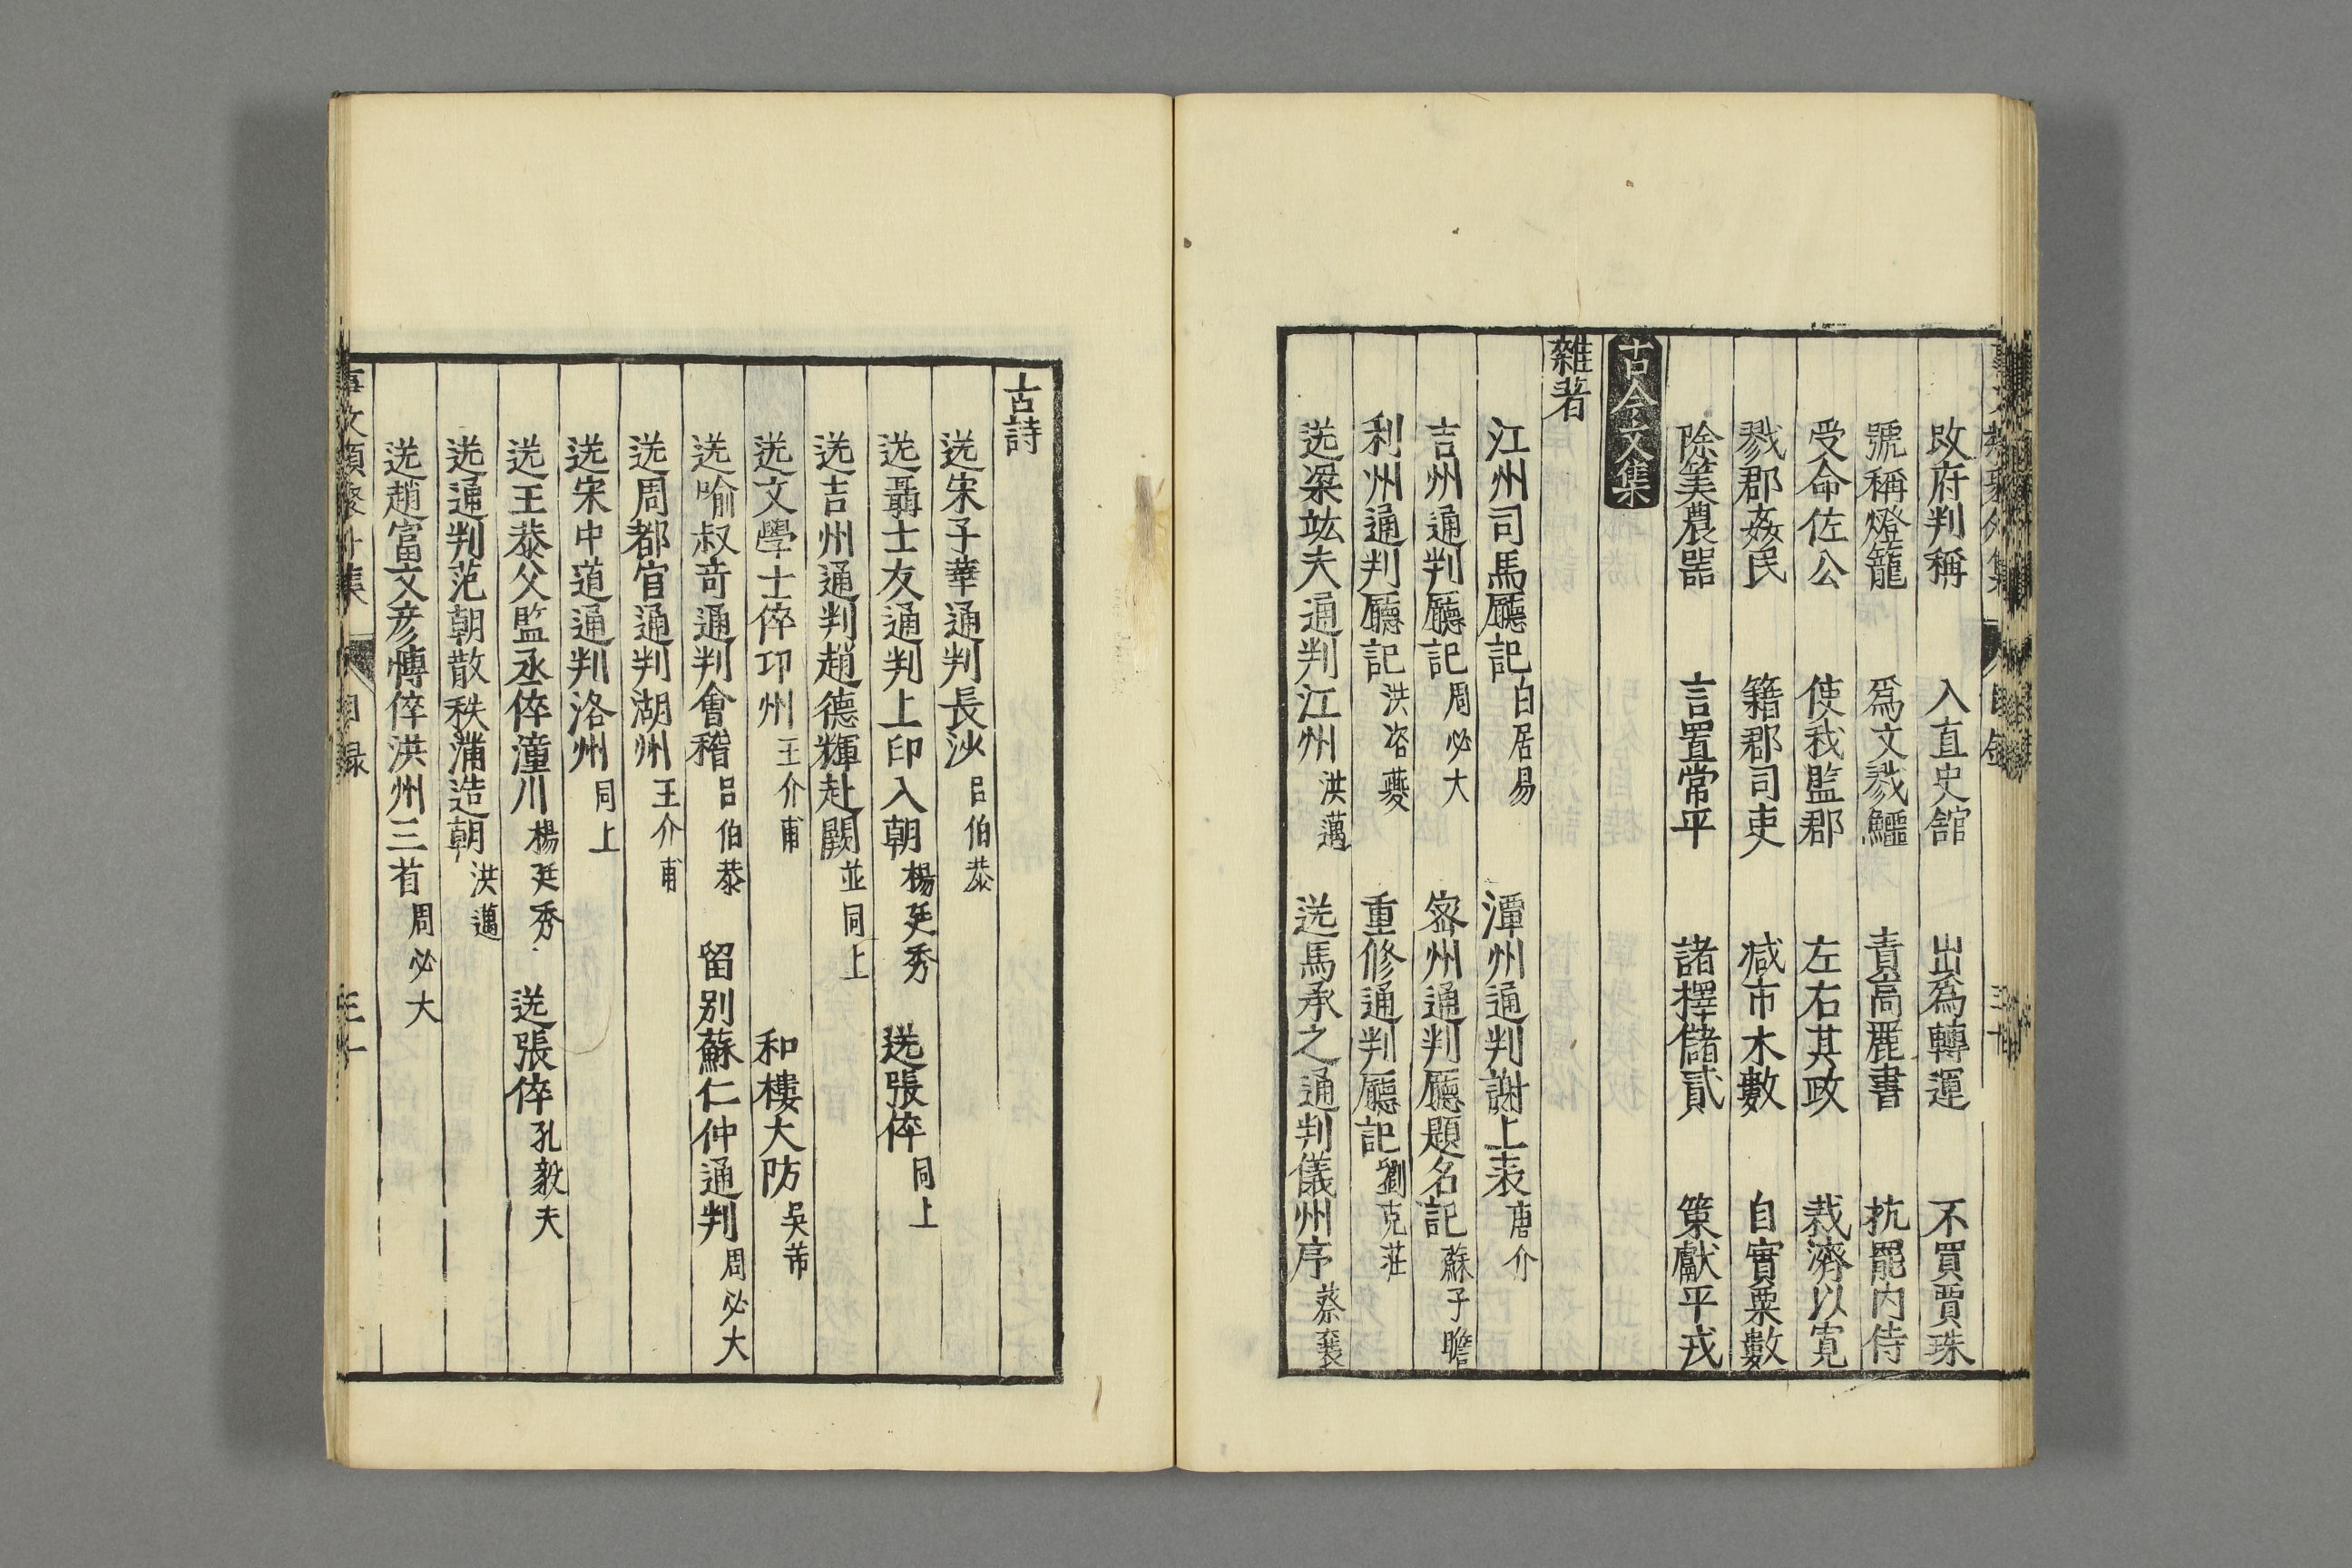 改府判稱　入直史館　出為轉運　不買賈珠
號稱燈籠　為文戮鱷　責高麗書　抗罷内侍
受命佐公　使我監郡　左右其政　裁濟以寬
戮郡姦民　籍郡司吏　减市木數　自實粟數
除筭農噐　言置常平　諸擇儲貳　策獻平戎
古今文集
雜著
江州司馬廳記 白居易　潭州通判謝上表 唐介
吉州通判廳記 周必大　宻州通判廳題名記 蘇子瞻
利州通判廳記 洪咨夔　重修通判廳記 劉克莊
送梁竑夫通判江州 洪邁　送馬承之通判儀州序 蔡襄
古詩
送宋子華通判長沙 吕伯恭
送聶士友通判上印入朝 楊廷秀　送張倅 同上
送吉州通判趙德輝赴闕 並同上
送文學士倅卭州 王介甫　和樓大防 吳芾
送喻叔奇通判會稽 吕伯恭　留别蘇仁仲通判 周必大
送周都官通判湖州 王介甫
送宋中道通判洛州 同上
送王恭父監丞倅潼川 楊廷秀　送張倅 孔毅夫
送通判范朝散秩滿造朝 洪邁
送趙富文彦博倅洪州三首 周必大
事文類聚外集　目録